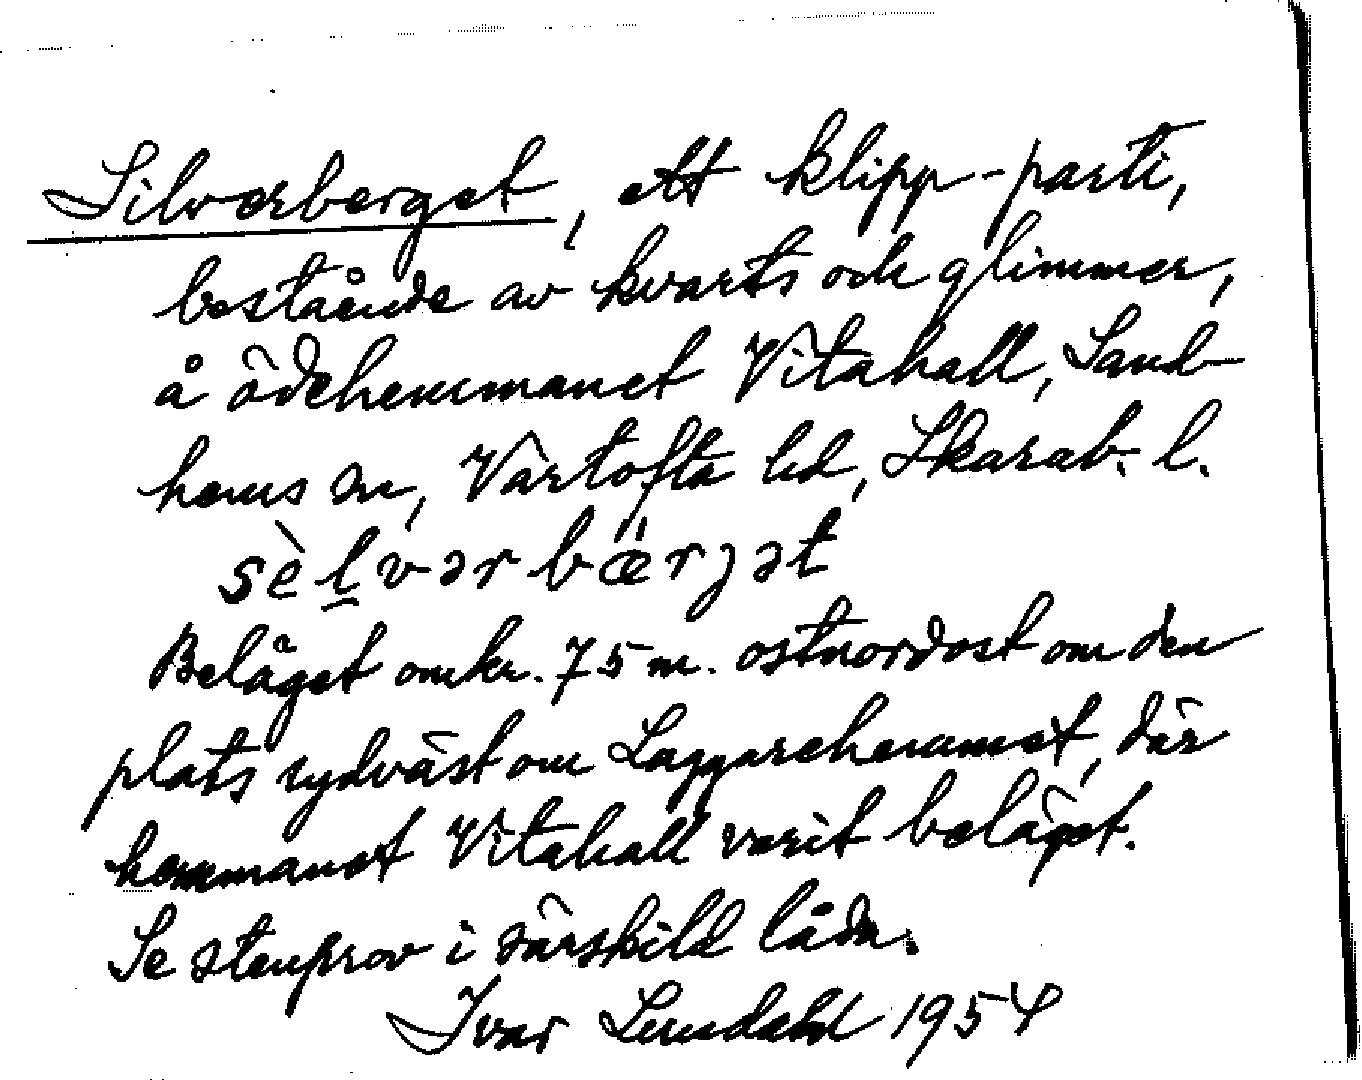 Silverberget, ett klipp-parti,
bestående av kvarts och glimmer,
å ödehemmanet Vitahall, Sand-
hems sn, Vartofta hd, Skarab. l.
sèl̲vərbærjət
Beläget omkr. 75 m. ostnordost om den
plats sydväst om Laggarehemmet, där
hemmanet Vitahall varit beläget.
Se stenprov i särskild låda.
Ivar Lundahl 1954